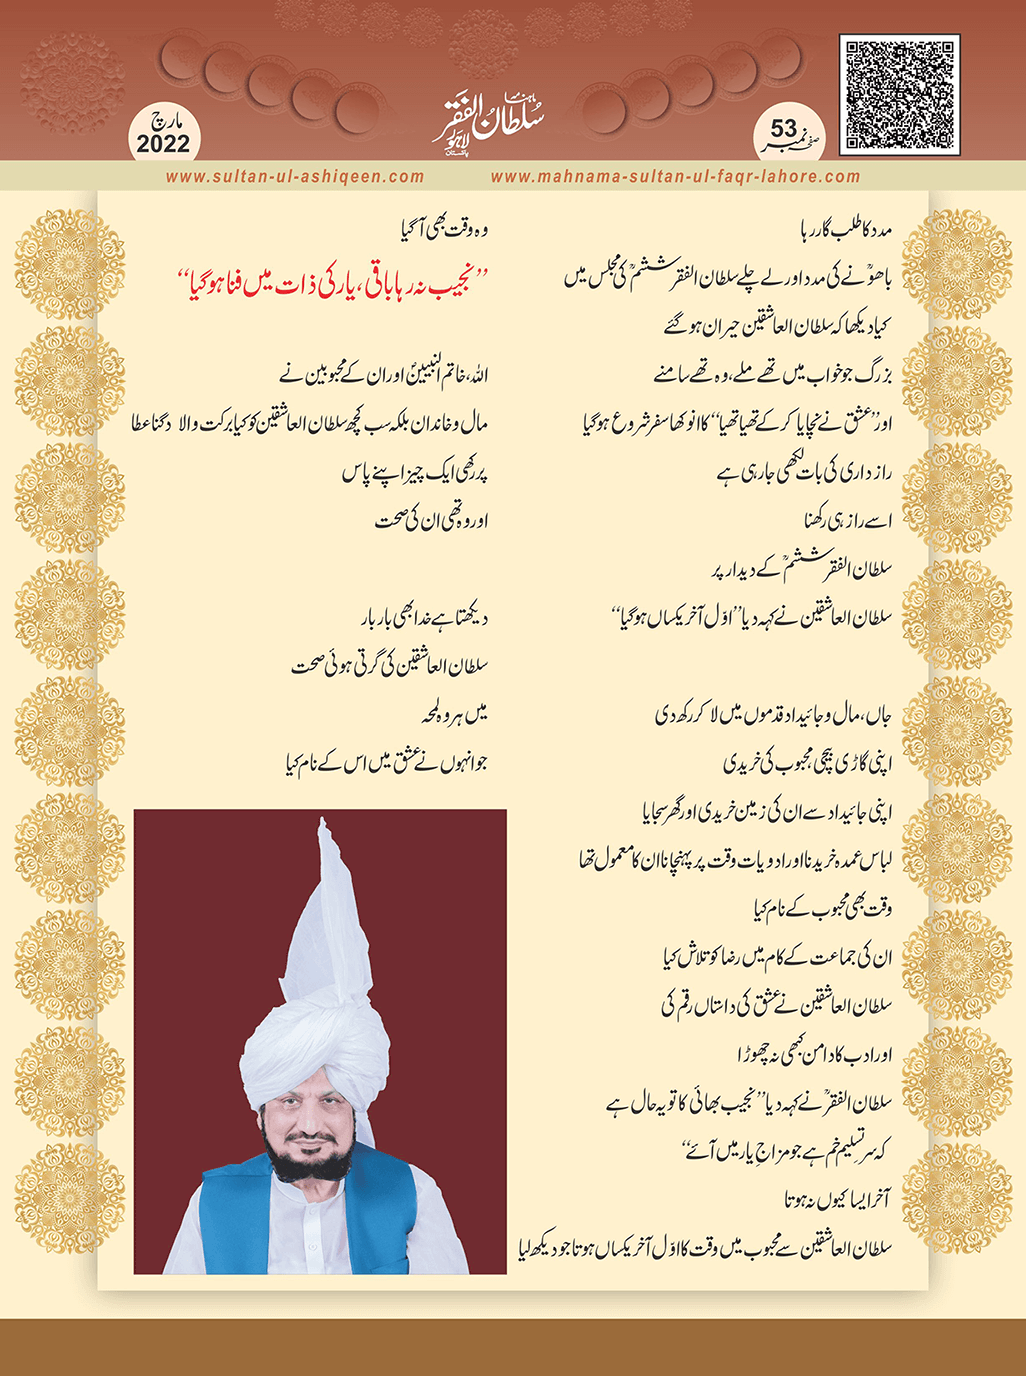 مارچ
2022
ماہنامہ
سُلطانُ الفقر
لاہور
پاکستان
53
صفحہ نمبر
www.sultan-ul-ashiqeen.com
www.mahnama-sultan-ul-faqr-lahore.com
مدد کا طلب گار رہا
باھوؒ نے کی مدد اور لے چلے سلطان الفقر ششمؒ کی مجلس میں
کیا دیکھا کہ سلطان العاشقین حیران ہوگئے
بزرگ جو خواب میں تھے ملے، وہ تھے سامنے
اور ’’عشق نے نچایا کرکے تھیا تھیا‘‘ کا انوکھا سفر شروع ہوگیا
راز داری کی بات لکھی جارہی ہے
اسے راز ہی رکھنا
سلطان الفقر ششمؒ کے دیدار پر
سلطان العاشقین نے کہہ دیا ’’اوّل آخر یکساں ہوگیا‘‘
جاں، مال و جائیداد قدموں میں لا کر رکھ دی
اپنی گاڑی بیچی محبوب کی خریدی
اپنی جائیداد سے ان کی زمین خریدی اور گھر سجایا
لباس عمدہ خریدنا اور ادویات وقت پر پہنچانا ان کا معمول تھا
وقت بھی محبوب کے نام کیا
ان کی جماعت کے کام میں رضا کو تلاش کیا
سلطان العاشقین نے عشق کی داستاں رقم کی
اور ادب کا دامن کبھی نہ چھوڑا
سلطان الفقرؒ نے کہہ دیا ’’نجیب بھائی کا تو یہ حال ہے
کہ سرِ تسلیم خم ہے جو مزاجِ یار میں آئے‘‘
آخر ایسا کیوں نہ ہوتا
سلطان العاشقین سے محبوب میں وقت کا اوّل آخر یکساں ہوتا جو دیکھ لیا
وہ وقت بھی آگیا
’’نجیب نہ رہا باقی، یار کی ذات میں فنا ہوگیا‘‘
اللہ، خاتم النبیینؐ اور ان کے محبوبین نے
مال و خاندان بلکہ سب کچھ سلطان العاشقین کو کیا برکت والا دگنا عطا
پر رکھی ایک چیز اپنے پاس
اور وہ تھی ان کی صحت
دیکھتا ہے خدا بھی بار بار
سلطان العاشقین کی گرتی ہوئی صحت
میں ہر وہ لمحہ
جو انہوں نے عشق میں اس کے نام کیا